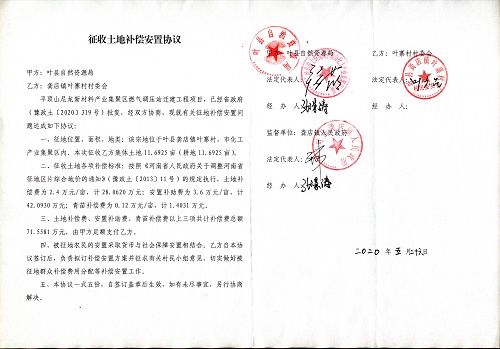 征收土地补偿安置协议
甲方：叶县自然资源局
乙方：龚店镇叶寨村村委会
平顶山尼龙新材料产业集聚区燃气调压站迁建工程项目，已经省政府
（豫政土【2020】319号）批复，经双方协商，现就有关征地补偿安置问
题达成如下协议：
一、征地位置、面积、地类：该宗地位于叶县龚店镇叶寨村，市化工
产业集聚区内。本次征收乙方集体土地11.6925亩（耕地11.6925亩）。
二、征收土地各项补偿标准：按照《河南省人民政府关于调整河南省
征地区片综合地价的通知》（豫政土【2013】11号）的规定执行。土地补
偿费为2.4万元/亩，计28.0620万元；安置补助费为3.6万元/亩，计
42.0930万元；青苗补偿费为0.12万元/亩，计1.4031万元。
三、土地补偿费、安置补助费、青苗补偿费以上三项共计补偿总额
71.5581万元，由甲方足额支付乙方。
四、被征地农民的安置采取货币与社会保障安置相结合。乙方自本协
议签订后，负责拟订补偿安置方案并征求有关村民小组意见，切实做好被
征地群众补偿费用分配等补偿安置工作。
五、本协议一式五份，自签订盖章后生效，如有未尽事宜，另行协商
解决。
甲方：叶县自然资源局
乙方：叶寨村村委会
法定代表人：
法定代表人：
经 办 人：
经 办 人：
监督单位：龚店镇人民政府
法定代表人：
经 办 人：
2020 年 五 月